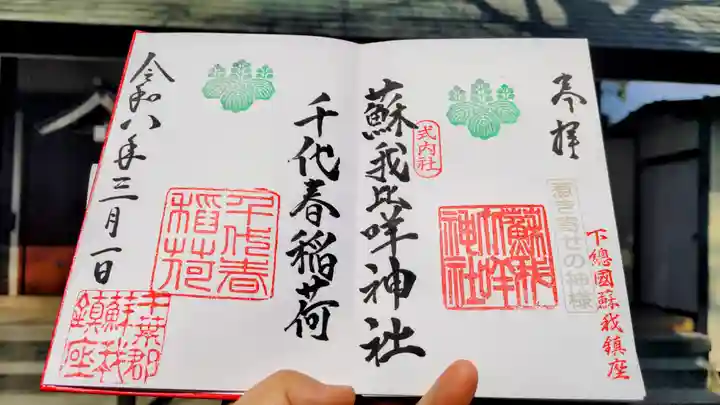 奉拝
下總國蘇我鎮座
惹き寄せの神様
蘇我比咩神社
式内社
蘇我比咩神社
千代春稲荷
千代春稲荷
令和八年三月一日
千葉郡蘇我鎮座